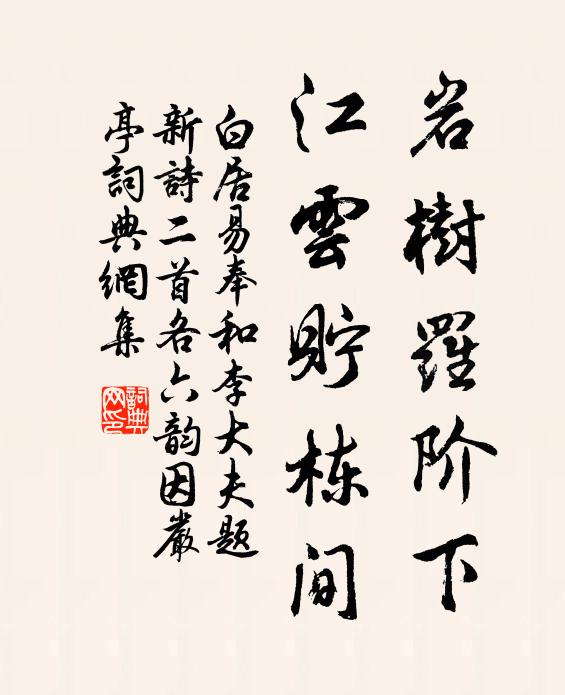 岩樹羅阶下
江雲貯栋间
白居易奉和李大夫题
新詩二首各六韵因嚴
亭詞典網集
詞典
网印